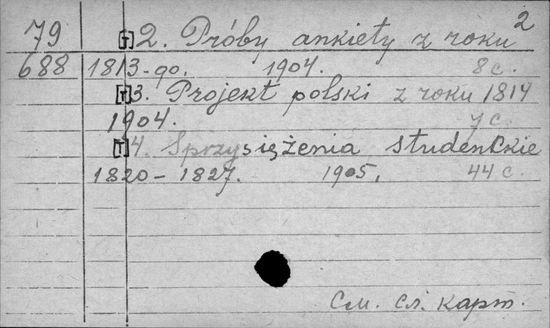 2
79 [т] 2. Próby ankiety z roku
688 1813-go. 1904. 8 с.
[т] 3. Projekt polski z roku 1814
1904. 7 с.
[т] 4. Sprzysiężenia studenckie
1820 – 1827. 1905. 44 с.
См. сл. карт.